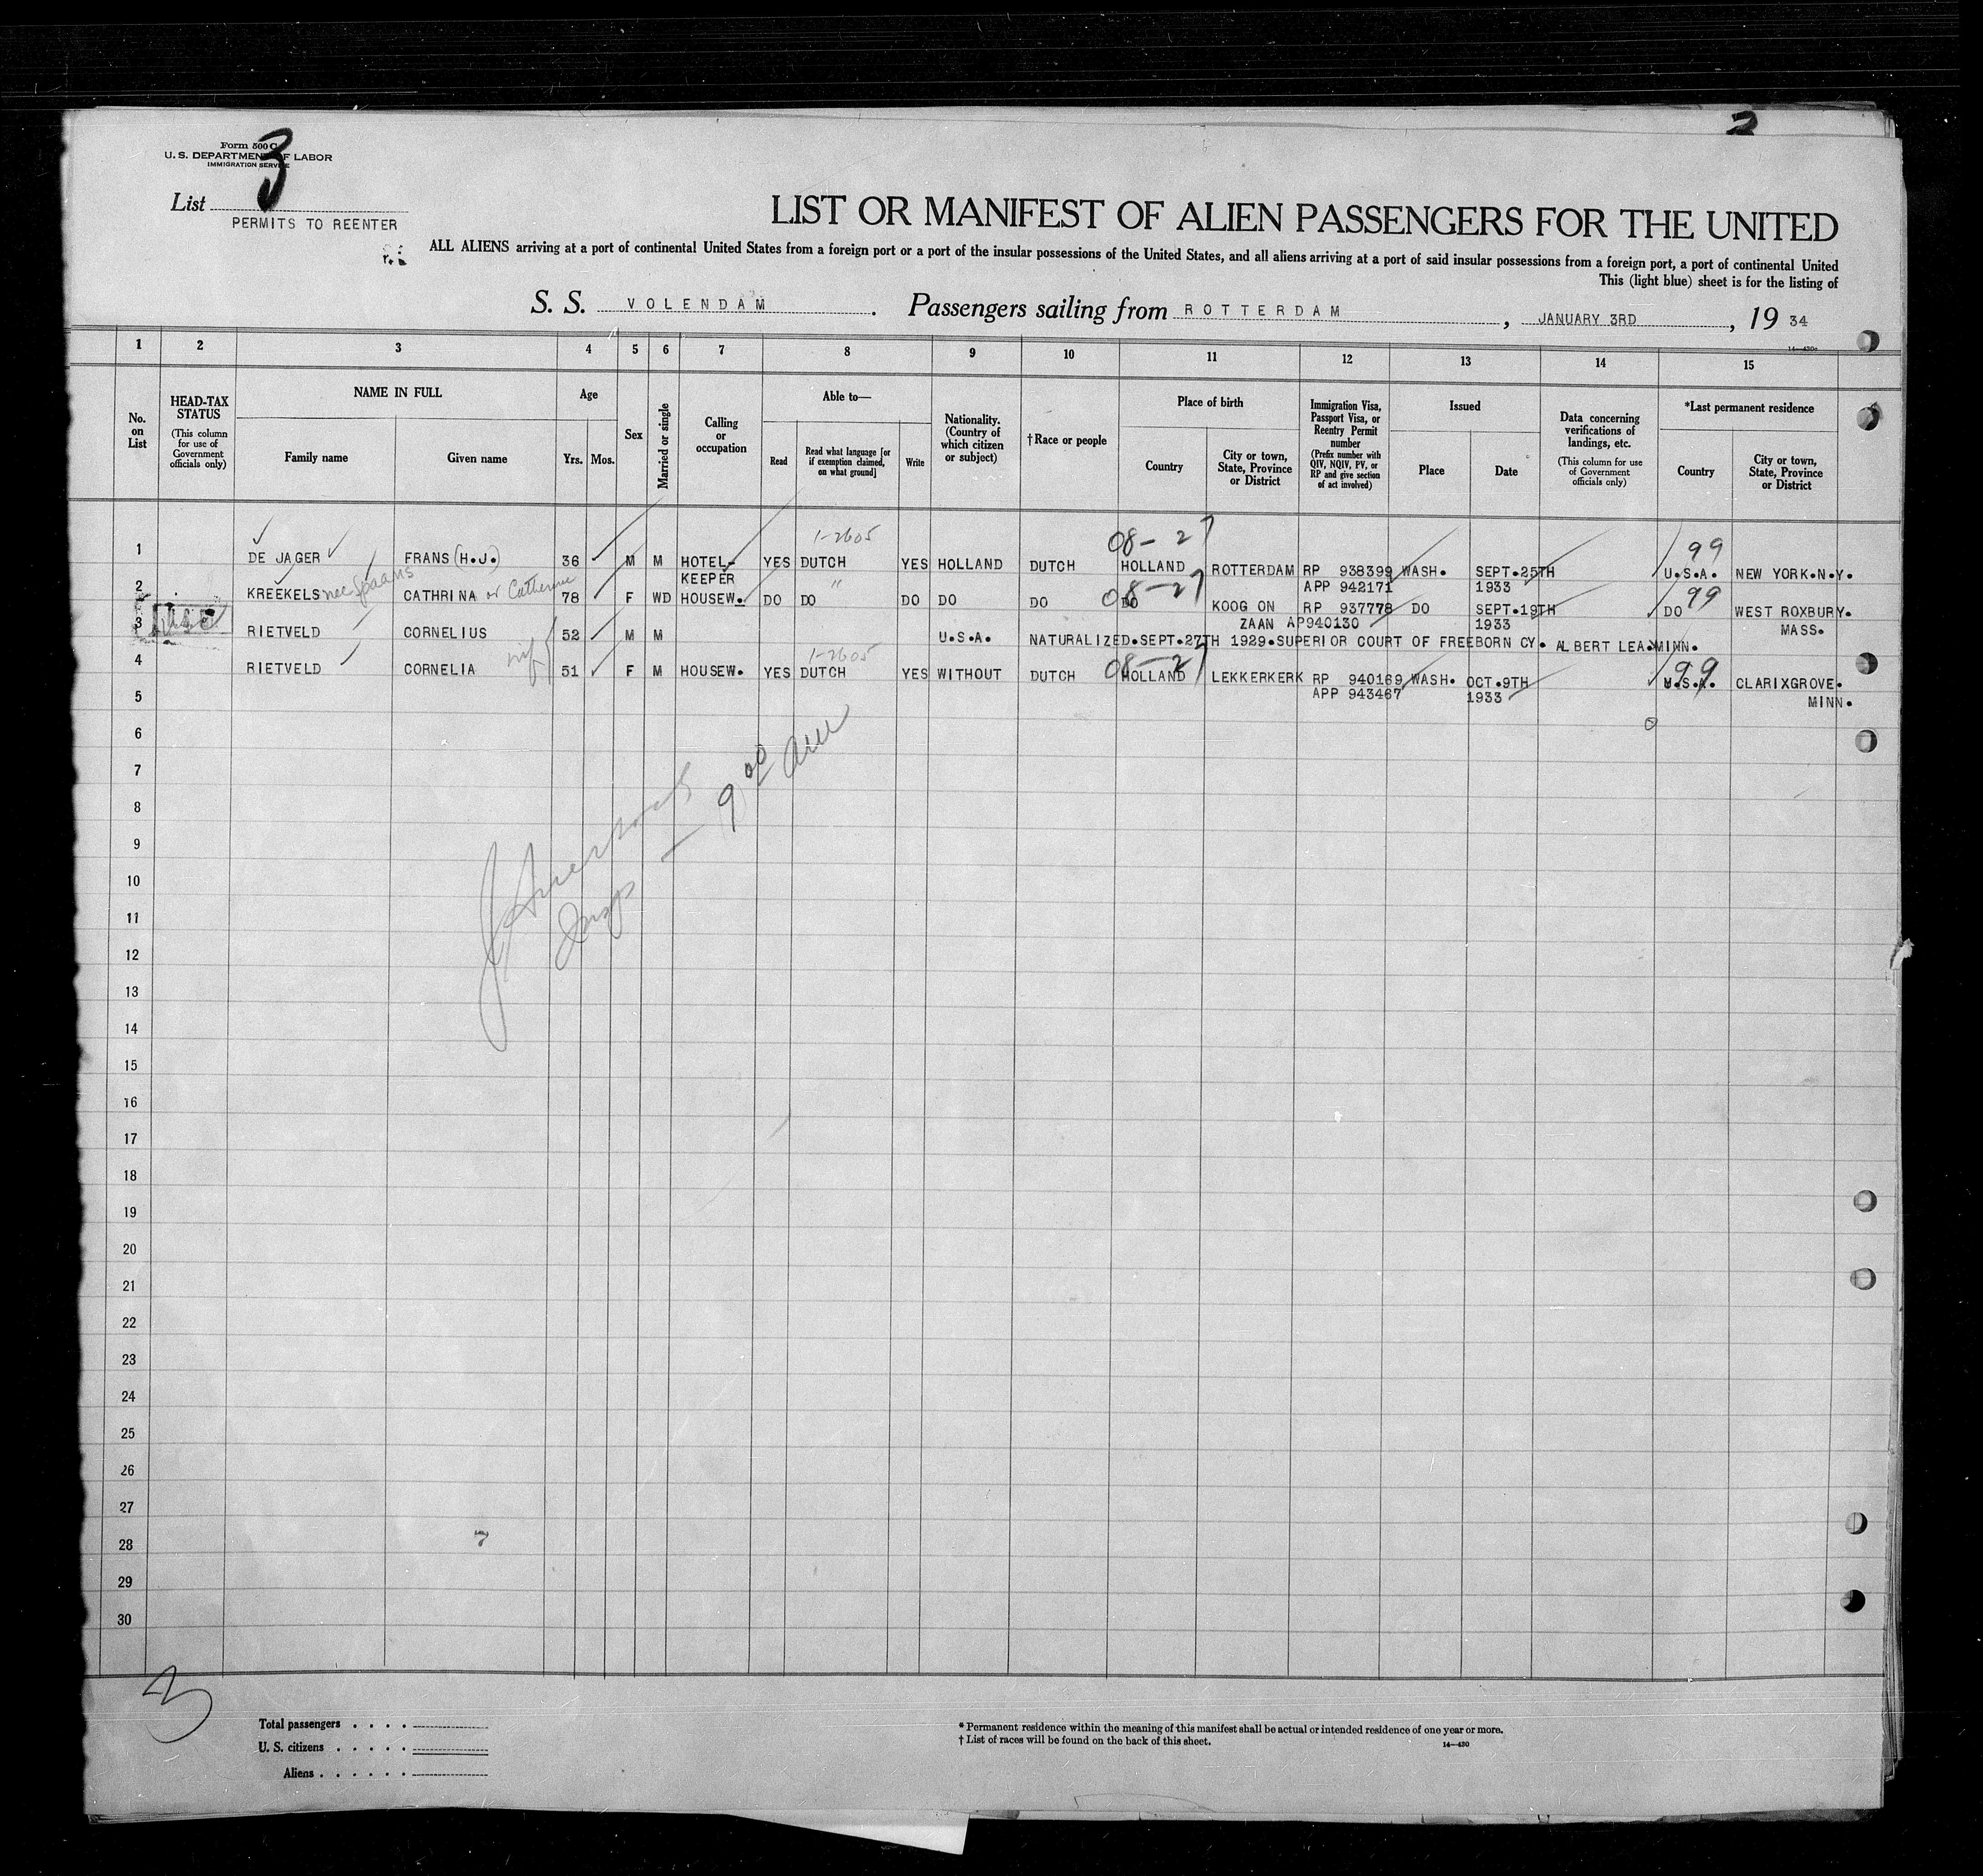 Form 500 C
U. S. DEPARTMENT OF LABOR
IMMIGRATION SERVICE
3
2
List
PERMITS TO REENTER
LIST OR MANIFEST OF ALIEN PASSENGERS FOR THE UNITED
ALL ALIENS arriving at a port of continental United States from a foreign port or a port of the insular possessions of the United States, and all aliens arriving at a port of said insular possessions from a foreign port, a port of continental United
This (light blue) sheet is for the listing of
S. S. VOLENDAM. Passengers sailing from ROTTERDAM, JANUARY 3RD, 19 34
1 2 3 4 5 6 7 8 9 10 11 12 13 14 15
No. on List
HEAD-TAX STATUS (This column for use of Government officials only)
NAME IN FULL
Family name Given name
Age
Yrs. Mos.
Sex
Married or single
Calling or occupation
Able to—
Read Read what language [or if exemption claimed, on what ground] Write
Nationality. (Country of which citizen or subject)
†Race or people
Place of birth
Country City or town, State, Province or District
Immigration Visa, Passport Visa, or Reentry Permit number (Prefix number with QIV, NQIV, PV, or RP and give section of act involved)
Issued
Place Date
Data concerning verifications of landings, etc. (This column for use of Government officials only)
*Last permanent residence
Country City or town, State, Province or District
1-2605 08-27 99
1 DE JAGER FRANS (H.J.) 36 M M HOTEL- YES DUTCH YES HOLLAND DUTCH HOLLAND ROTTERDAM RP 938399 WASH. SEPT.25TH U.S.A. NEW YORK.N.Y.
KEEPER APP 942171 1933
" 08-27 99
2 KREEKELS nee Spaans CATHRINA or Catherine 78 F WD HOUSEW. DO DO DO DO DO DO KOOG ON RP 937778 DO SEPT.19TH DO WEST ROXBURY.
ZAAN AP940130 1933 MASS.
3 USC RIETVELD CORNELIUS 52 M M U.S.A. NATURALIZED.SEPT.27TH 1929.SUPERIOR COURT OF FREEBORN CY. ALBERT LEA.MINN.
1-2605 08-27 99
4 RIETVELD CORNELIA wife 51 F M HOUSEW. YES DUTCH YES WITHOUT DUTCH HOLLAND LEKKERKERK RP 940169 WASH. OCT.9TH U.S.A. CLARIXGROVE.
APP 943467 1933 MINN.
5
6
7
8
9
10
11
12
13
14
15
16
17
18
19
20
21
22
23
24
25
26
27
28
29
30
Insp — 9 00 am
3
Total passengers . . . .
U. S. citizens . . . . .
Aliens . . . . . .
* Permanent residence within the meaning of this manifest shall be actual or intended residence of one year or more.
† List of races will be found on the back of this sheet.
14—430